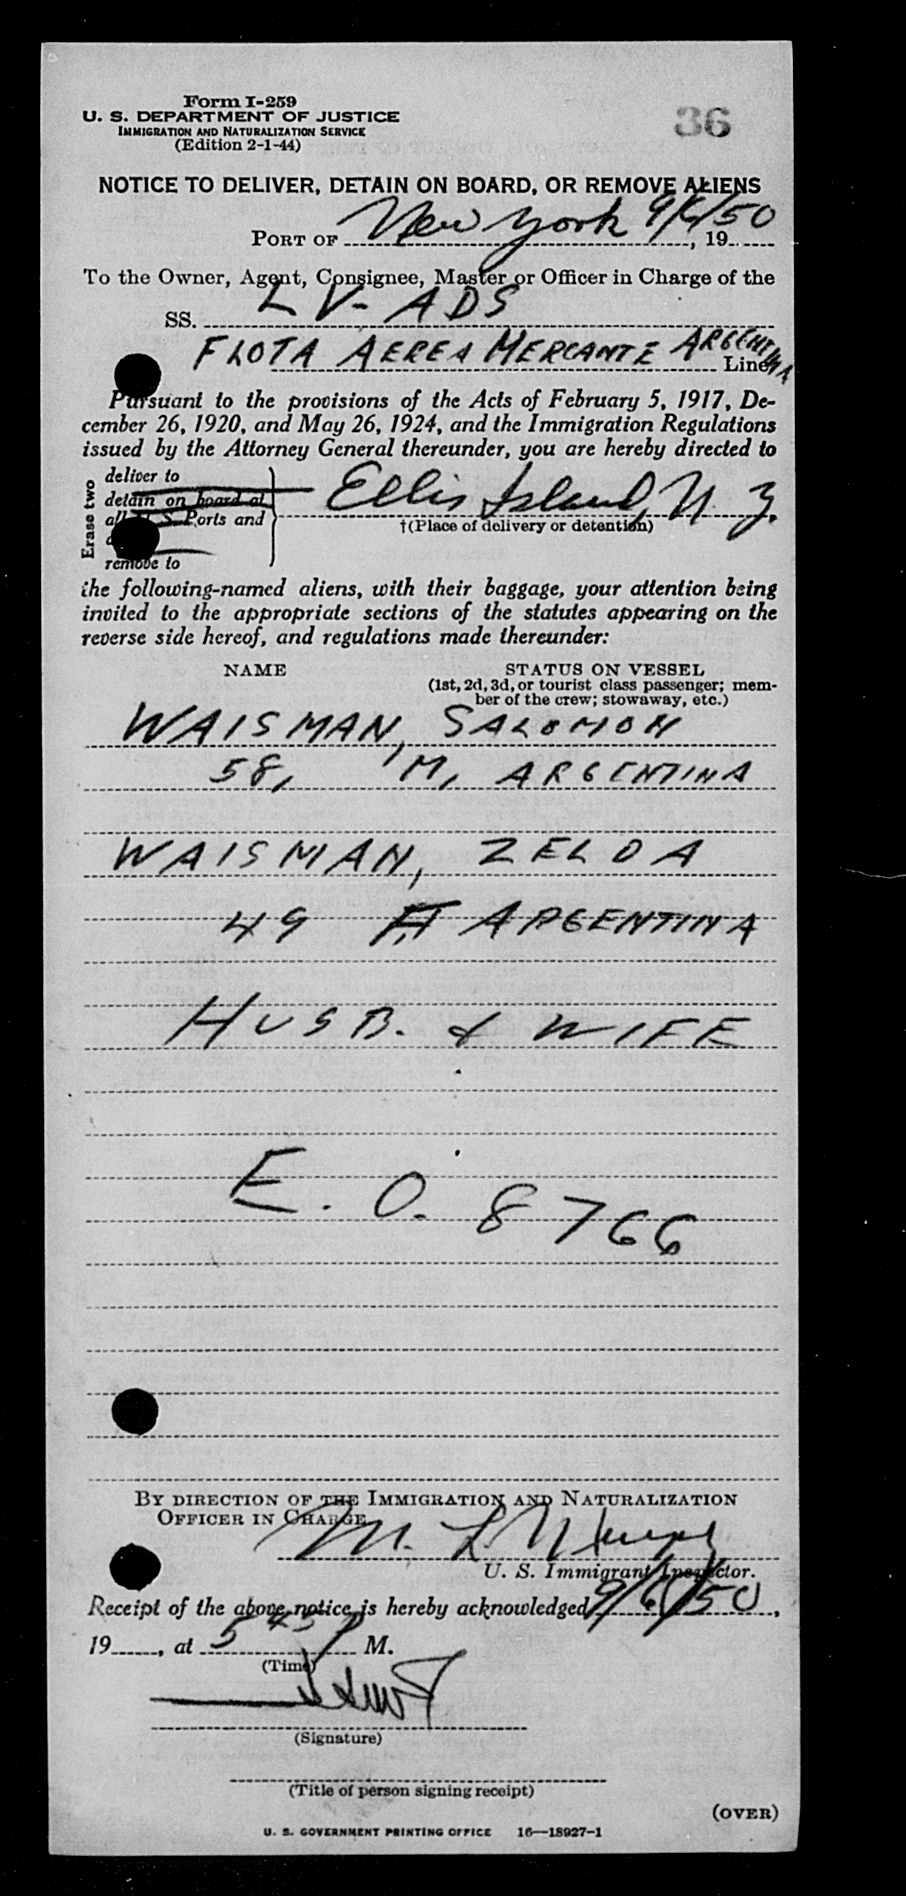 Form I-259
U. S. DEPARTMENT OF JUSTICE
IMMIGRATION AND NATURALIZATION SERVICE
(Edition 2-1-44)
36
NOTICE TO DELIVER, DETAIN ON BOARD, OR REMOVE ALIENS
PORT OF New York 9/6/50, 19
To the Owner, Agent, Consignee, Master or Officer in Charge of the
SS. LV-ADS
FLOTA AEREA MERCANTE ARGENTINA Line
Pursuant to the provisions of the Acts of February 5, 1917, De-
cember 26, 1920, and May 26, 1924, and the Immigration Regulations
issued by the Attorney General thereunder, you are hereby directed to
Erase two
deliver to
detain on board at
all U. S. Ports and
remove to
Ellis Island, N. Y.
†(Place of delivery or detention)
the following-named aliens, with their baggage, your attention being
invited to the appropriate sections of the statutes appearing on the
reverse side hereof, and regulations made thereunder:
NAME STATUS ON VESSEL
(1st, 2d, 3d, or tourist class passenger; mem-
ber of the crew; stowaway, etc.)
WAISMAN, SALOMON
58, M, ARGENTINA
WAISMAN, ZELDA
49 F, ARGENTINA
HUSB. & WIFE
E. O. 8766
BY DIRECTION OF THE IMMIGRATION AND NATURALIZATION
OFFICER IN CHARGE
M. L.
U. S. Immigrant Inspector.
Receipt of the above notice is hereby acknowledged 9/6/50,
19, at 5 45 P M.
(Time)
(Signature)
(Title of person signing receipt)
(OVER)
U. S. GOVERNMENT PRINTING OFFICE 16—18927-1